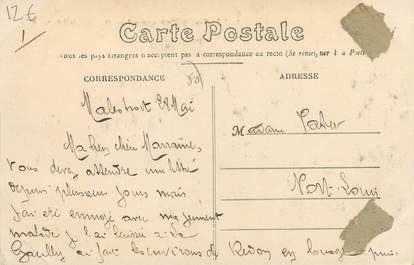 12€
1
Carte Postale
Tous les pays étrangers n'acceptent pas la correspondance au recto (Se renseigner à la Poste)
CORRESPONDANCE
ADRESSE
Malestroit 28 Mai
Ma bien chère Marraine,
Vous devez attendre une lettre
depuis plusieurs jours mais
j'ai été ennuyé avec ma jument
malade je l'ai laissée à la
Gacilly ai fait les environs de Redon en louage puis
Madame
Port-Louis